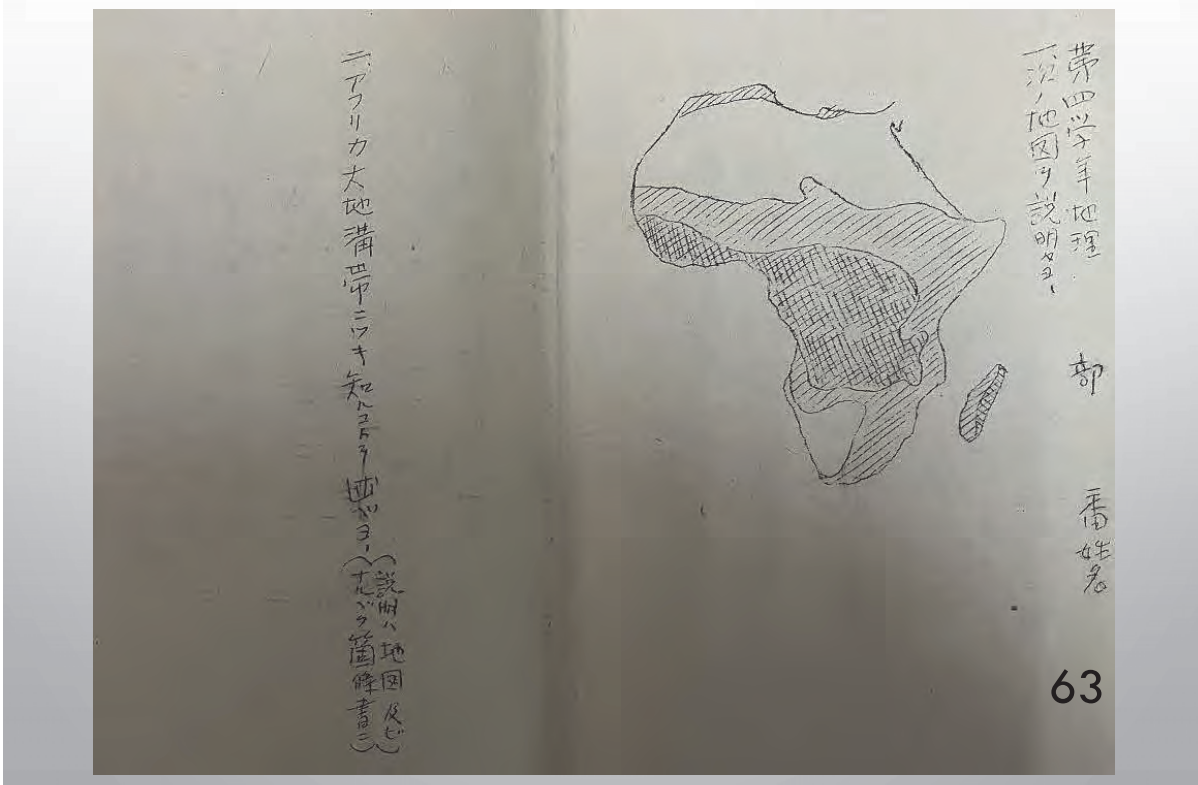 第四学年地理 部 番姓名
一、次ノ地図ヲ説明セヨ、
二、アフリカ大地溝帯ニツキ知ルコトヲ述ベヨ、
(説明ハ地図及ビ
ナルベク箇條書ニ)
63